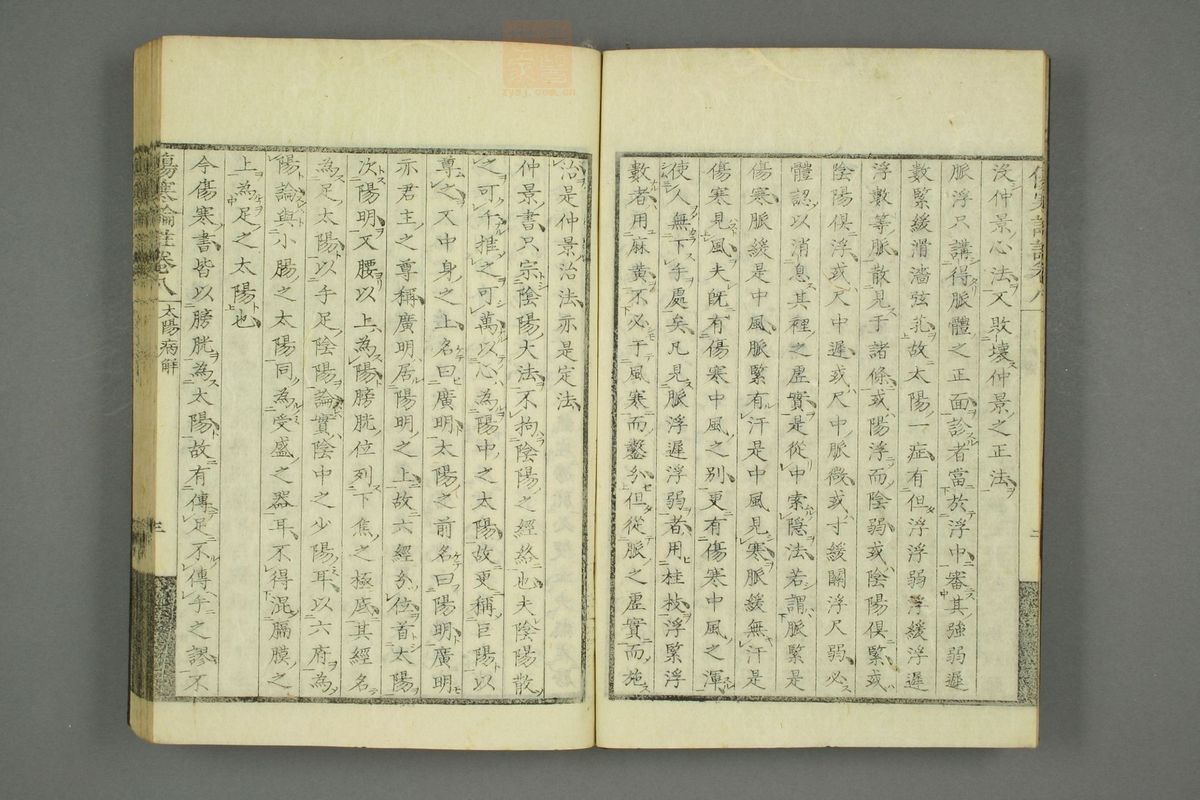 沒仲景心法又敗壞仲景之正法
脈浮只講得脈體之正面診者當於浮中審其強弱遲
數緊緩滑濇弦芤故太陽一症有但浮浮弱浮緩浮遲
浮數等脈散見于諸條或陽浮而陰弱或陰陽俱緊或
陰陽俱浮或尺中遲或尺中脈微或寸緩關浮尺弱必
體認以消息其裡之虛實是從中索隱法若謂脈緊是
傷寒脈緩是中風脈緊有汗是中風見寒脈緩無汗是
傷寒見風夫既有傷寒中風之別更有傷寒中風之渾
使人無下手處矣凡見脈浮遲浮弱者用桂枝浮緊浮
數者用麻黃不必于風寒而鑿分但從脈之虛實而施
治是仲景治法亦是定法
仲景書只宗陰陽大法不拘陰陽之經絡也夫陰陽散
之可千推之可萬以心為陽中之太陽故更稱巨陽以
尊之又中身之上名曰廣明太陽之前名曰陽明廣明
亦君主之尊稱廣明居陽明之上故六經分位首太陽
次陽明又腰以上為陽膀胱位列下焦之極底其經名
為足太陽以手足陰陽論實陰中之少陽耳以六府為
陽論與小腸之太陽同為受盛之器耳不得混膈膜之
上為足之太陽也
今傷寒書皆以膀胱為太陽故有傳足不傳手之謬不
傷寒論註卷八 太陽病解 三
zysj.com.cn